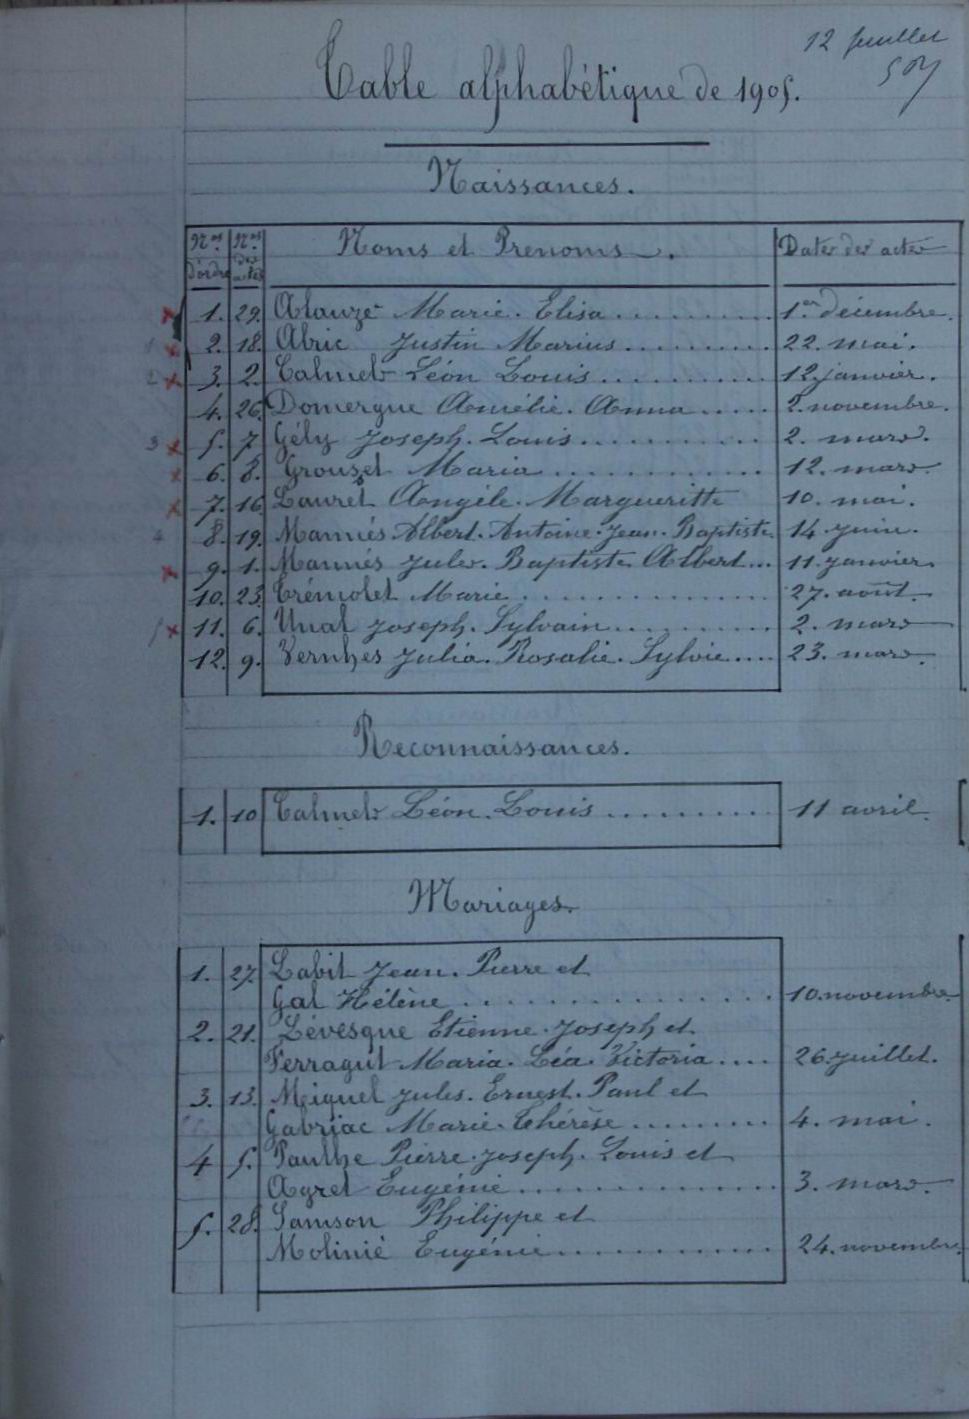 12 feuillet
Table alphabétique de 1905.
Naissances.
Nos d'ordre Nos des actes Noms et Prénoms. Dates des actes
1. 29. Alauze Marie. Elisa 1er décembre.
2. 18. Abric Justin Marius 22. mai.
3. 2. Calmels Léon Louis 12 janvier.
4. 26. Domergue Amélie. Anna 2. novembre.
5. 7. Gély Joseph. Louis 2. mars.
6. 8. Grouzet Maria 12. mars.
7. 16. Lauret Angèle. Margueritte 10. mai.
8. 19. Manniés Albert. Antoine. Jean. Baptiste 14. juin.
9. 1. Mannés Jules. Baptiste. Albert... 11. janvier.
10. 23. Trémolet Marie 27. août.
11. 6. Unal Joseph. Sylvain 2. mars
12. 9. Vernhes Julia. Rosalie. Sylvie.... 23. mars.
Reconnaissances.
1. 10 Calmels Léon. Louis 11 avril.
Mariages.
1. 27. Labit Jean. Pierre et
Gal Hélène 10. novembre.
2. 21. Lévesque Etienne. Joseph et
Ferragut Maria. Léa. Victoria 26. juillet.
3. 13. Miquel Jules. Ernest. Paul et
Gabriac Marie. Thérèse 4. mai.
4 5. Paulhe Pierre. Joseph. Louis et
Agret Eugénie 3. mars.
5. 28. Samson Philippe et
Molinié Eugénie 24. novembre